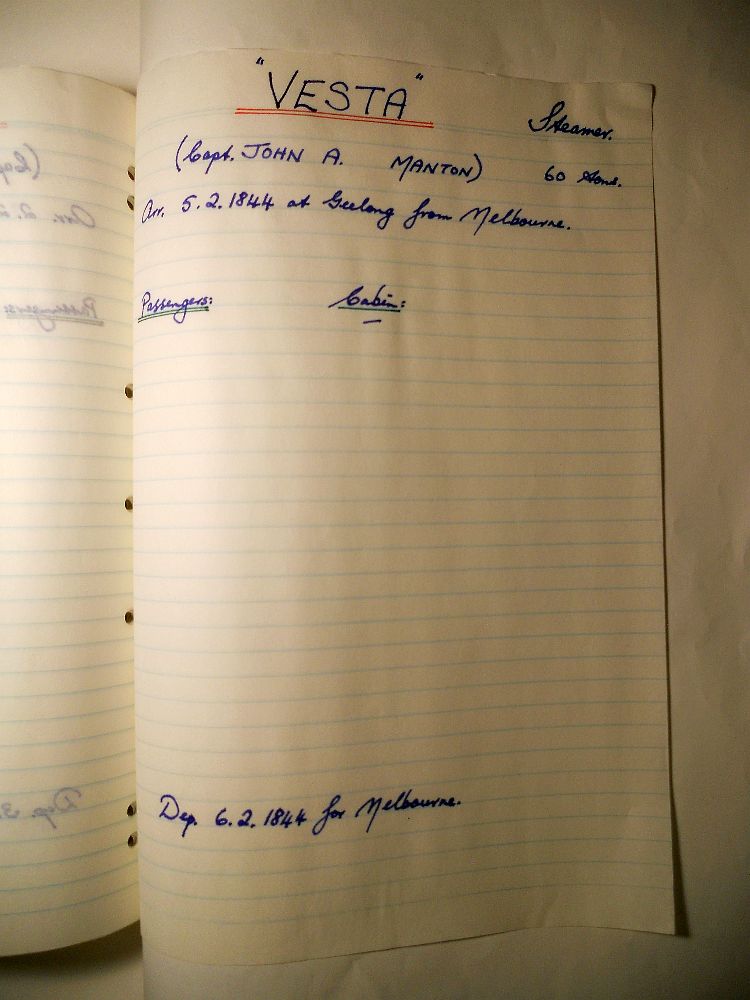 "VESTA"
Steamer.
(Capt. JOHN A. MANTON) 60 tons.
Arr. 5.2.1844 at Geelong from Melbourne.
Passengers: Cabin:
—
Dep. 6.2.1844 for Melbourne.